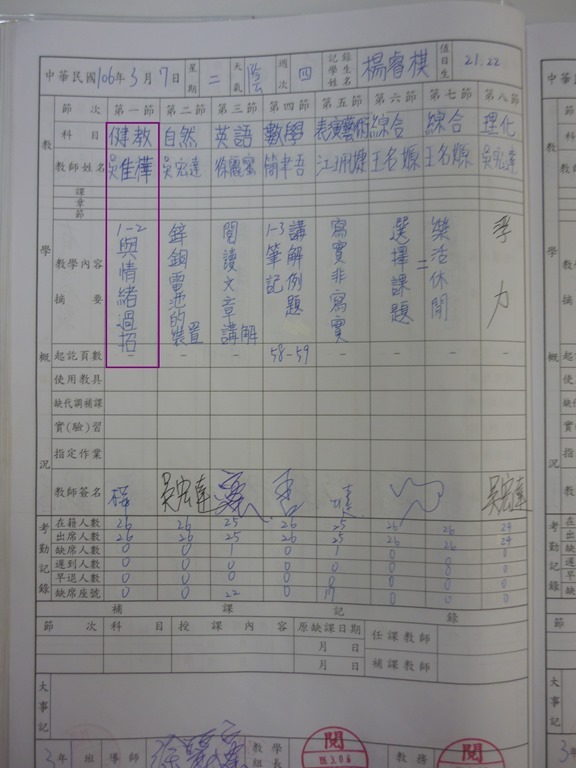 中華民國106年3月7日 星期 二 天氣 陰 週次 四 記錄學生姓名 楊睿楳 值日生 21.22
節次 第一節 第二節 第三節 第四節 第五節 第六節 第七節 第八節
科目 健教 自然 英語 數學 表演藝術 綜合 綜合 理化
教師姓名 吳佳樺 吳宏達 簡聿吾 王名嫄 王名嫄 吳宏達
教學概況
課章節
教學內容摘要 1-2與情緒過招 鋅銅電池的裝置 閱讀文章講解 1-3講解例題筆記 寫實非寫實 選擇課題 二 樂活休閒 浮力
起訖頁數 - - - 58-59 - - - -
使用教具
缺代調補課
實(驗)習
指定作業
教師簽名 樺 吳宏達 吾 吳宏達
考勤記錄
在籍人數 26 26 25 26 25 26 26 24
出席人數 26 26 25 26 25 26 26 24
缺席人數 0 0 1 0 1 0 0 0
遲到人數 0 0 0 0 0 0 0 0
早退人數 0 0 0 0 0 0 0 0
缺席座號 0 0 22 0 17 0 0 0
補課記錄
節次 科目 授課內容 原缺課日期 任課教師
月 日
月 日 補課教師
大事記
3年1班導師 教學組長 閱 教務 閱